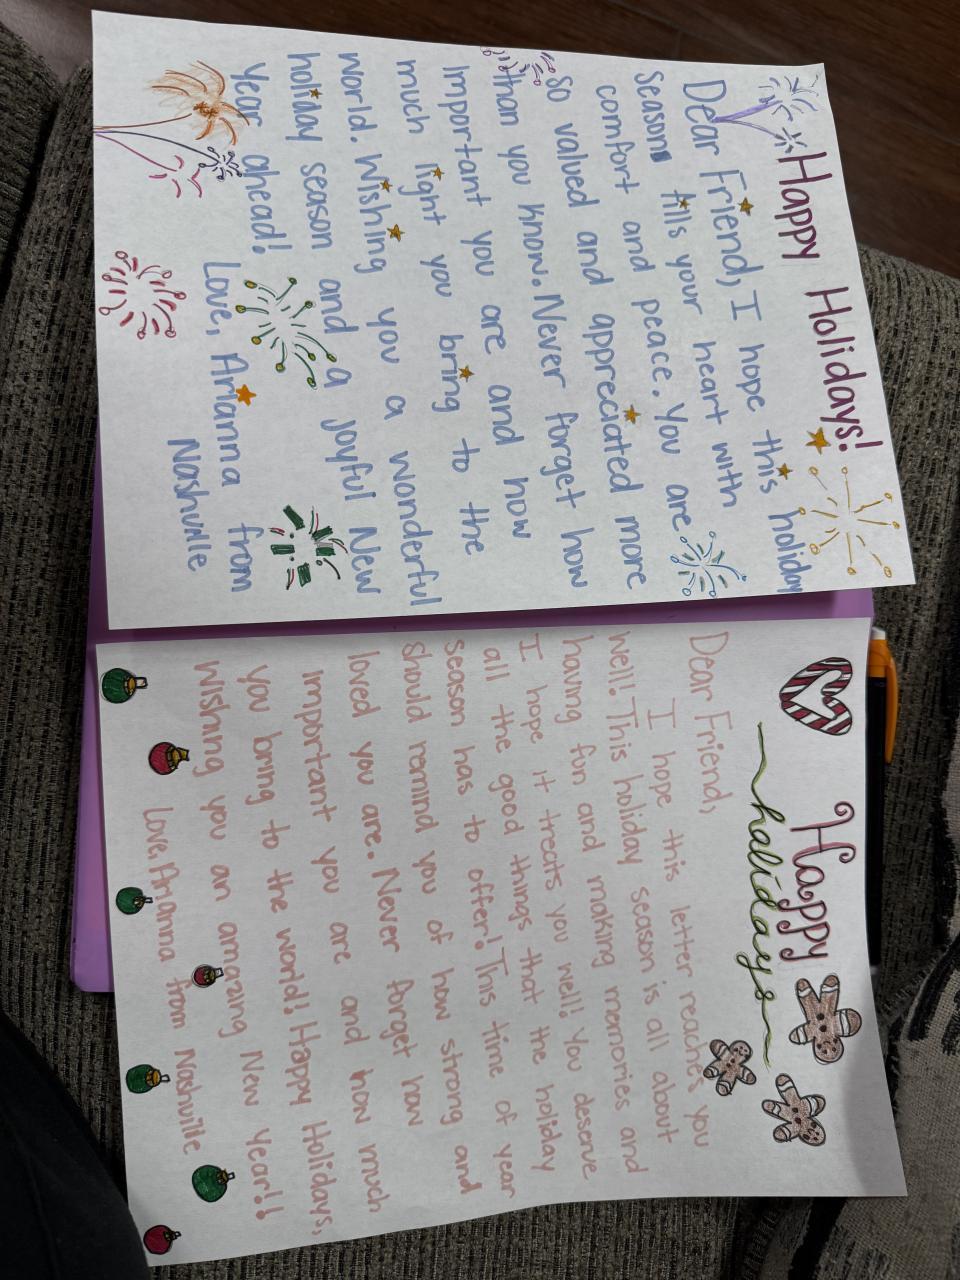 Happy Holidays!
Dear Friend, I hope this holiday
Season fills your heart with
comfort and peace. You are
so valued and appreciated more
than you know. Never forget how
important you are and how
much light you bring to the
world. Wishing you a wonderful
holiday season and a joyful New
Year ahead!
Love, Arianna from
Nashville
Happy
holidays
Dear Friend,
I hope this letter reaches you
well! This holiday season is all about
having fun and making memories and
I hope it treats you well! You deserve
all the good things that the holiday
season has to offer! This time of year
should remind you of how strong and
loved you are. Never forget how
important you are and how much
you bring to the world! Happy Holidays,
Wishing you an amazing New Year!!
Love, Arianna from Nashville